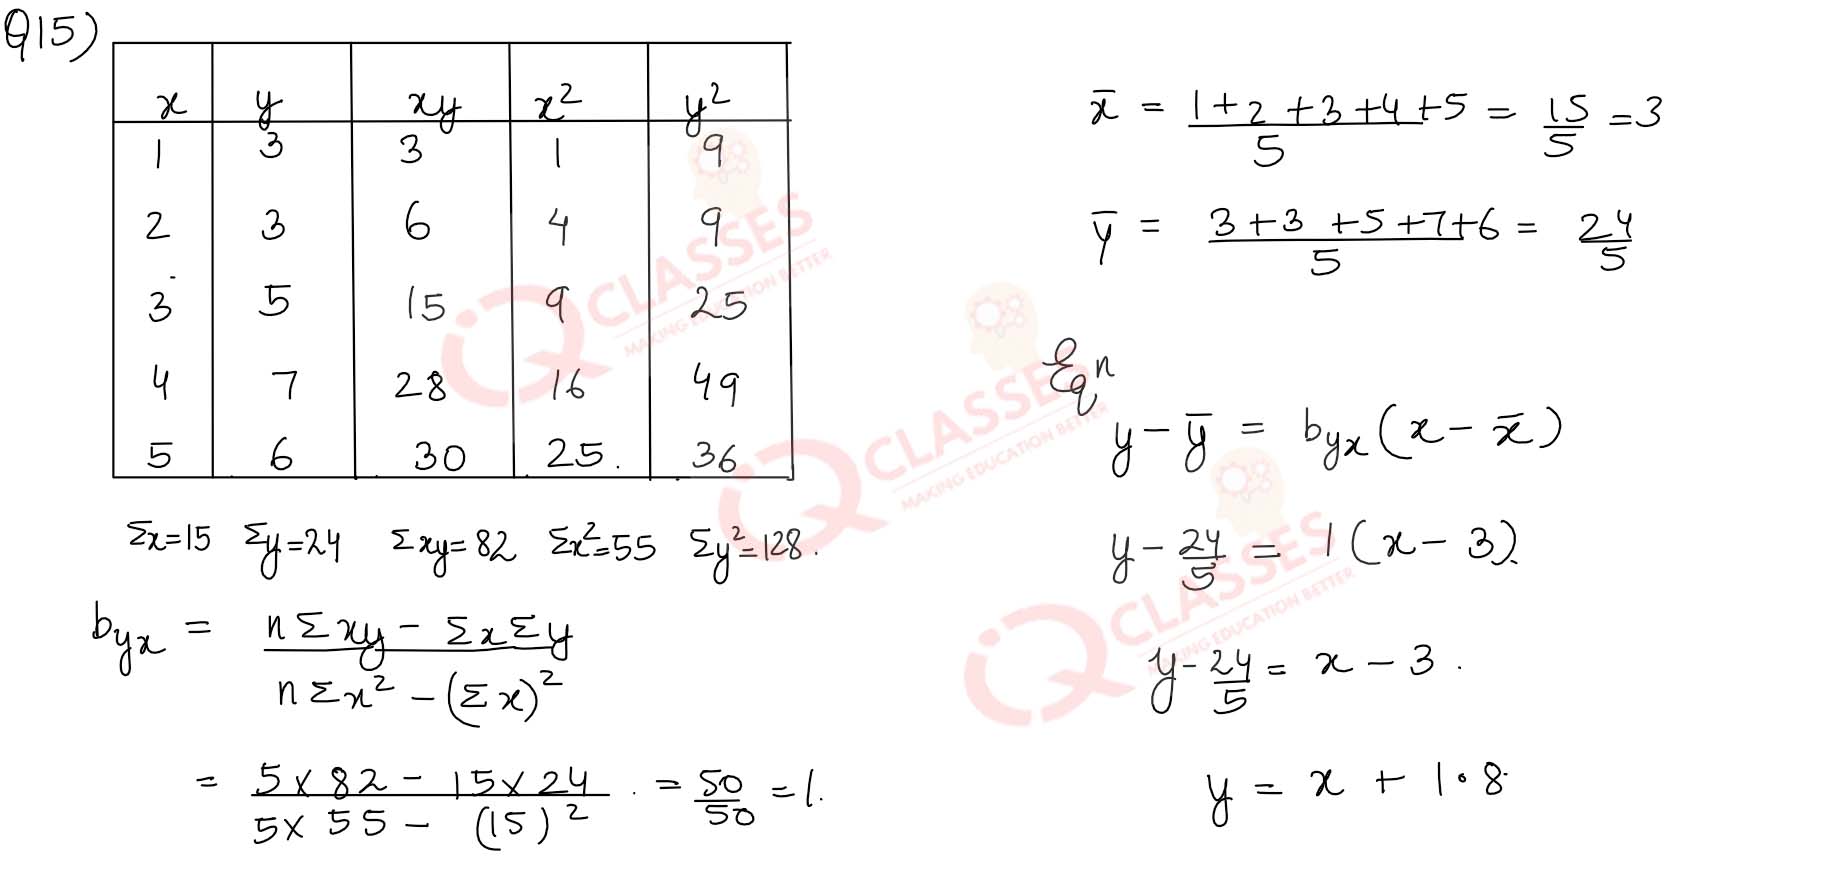 Q15)
x y xy x² y²
1 3 3 1 9
2 3 6 4 9
3 5 15 9 25
4 7 28 16 49
5 6 30 25 36
Σx=15 Σy=24 Σxy=82 Σx²=55 Σy²=128.
byx = (nΣxy − ΣxΣy) / (nΣx² − (Σx)²)
= (5×82 − 15×24) / (5×55 − (15)²) = 50/50 = 1.
x̄ = (1+2+3+4+5)/5 = 15/5 = 3
ȳ = (3+3+5+7+6)/5 = 24/5
Eqⁿ
y − ȳ = byx(x − x̄)
y − 24/5 = 1(x − 3)
y − 24/5 = x − 3.
y = x + 1.8
iQ CLASSES
MAKING EDUCATION BETTER
iQ CLASSES
MAKING EDUCATION BETTER
iQ CLASSES
MAKING EDUCATION BETTER